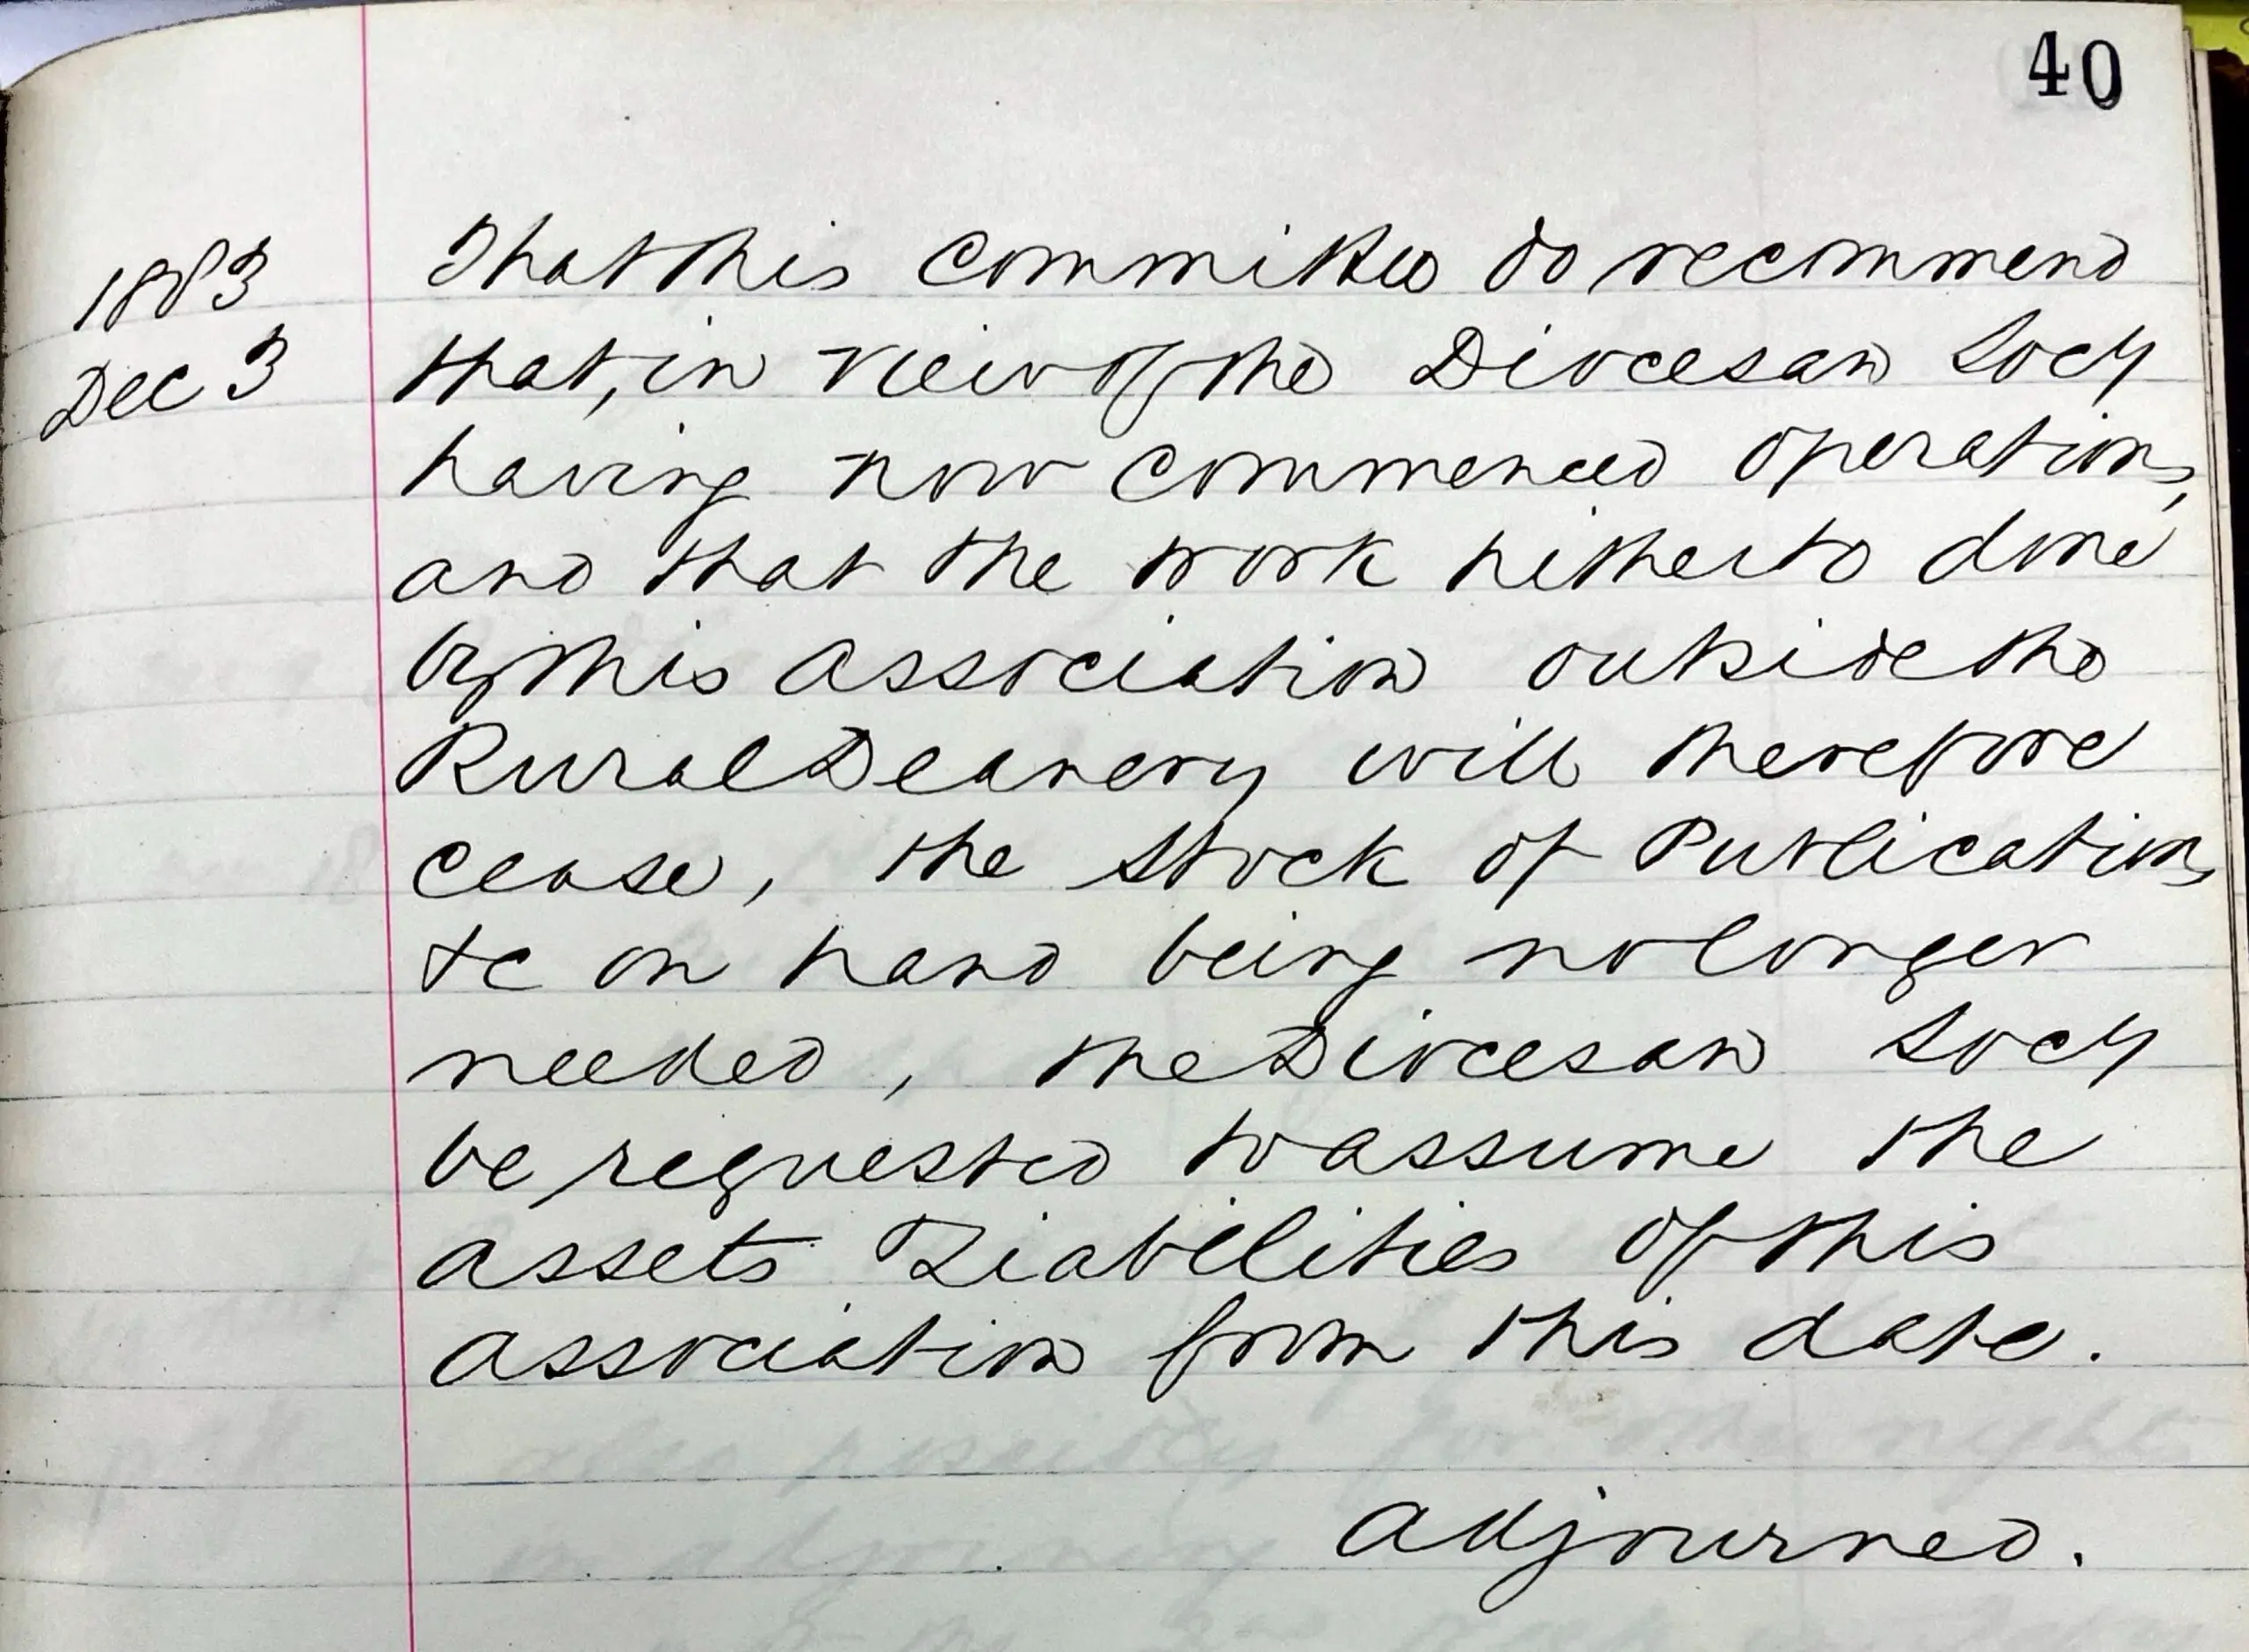 40
1883
Dec 3
That this Committee do recommend
that, in view of the Diocesan Socy
having now commenced operations,
and that the work hitherto done
by this Association outside the
Rural Deanery will therefore
cease, the stock of Publications
&c on hand being no longer
needed, the Diocesan Socy
be requested to assume the
assets Liabilities of this
association from this date.
Adjourned.